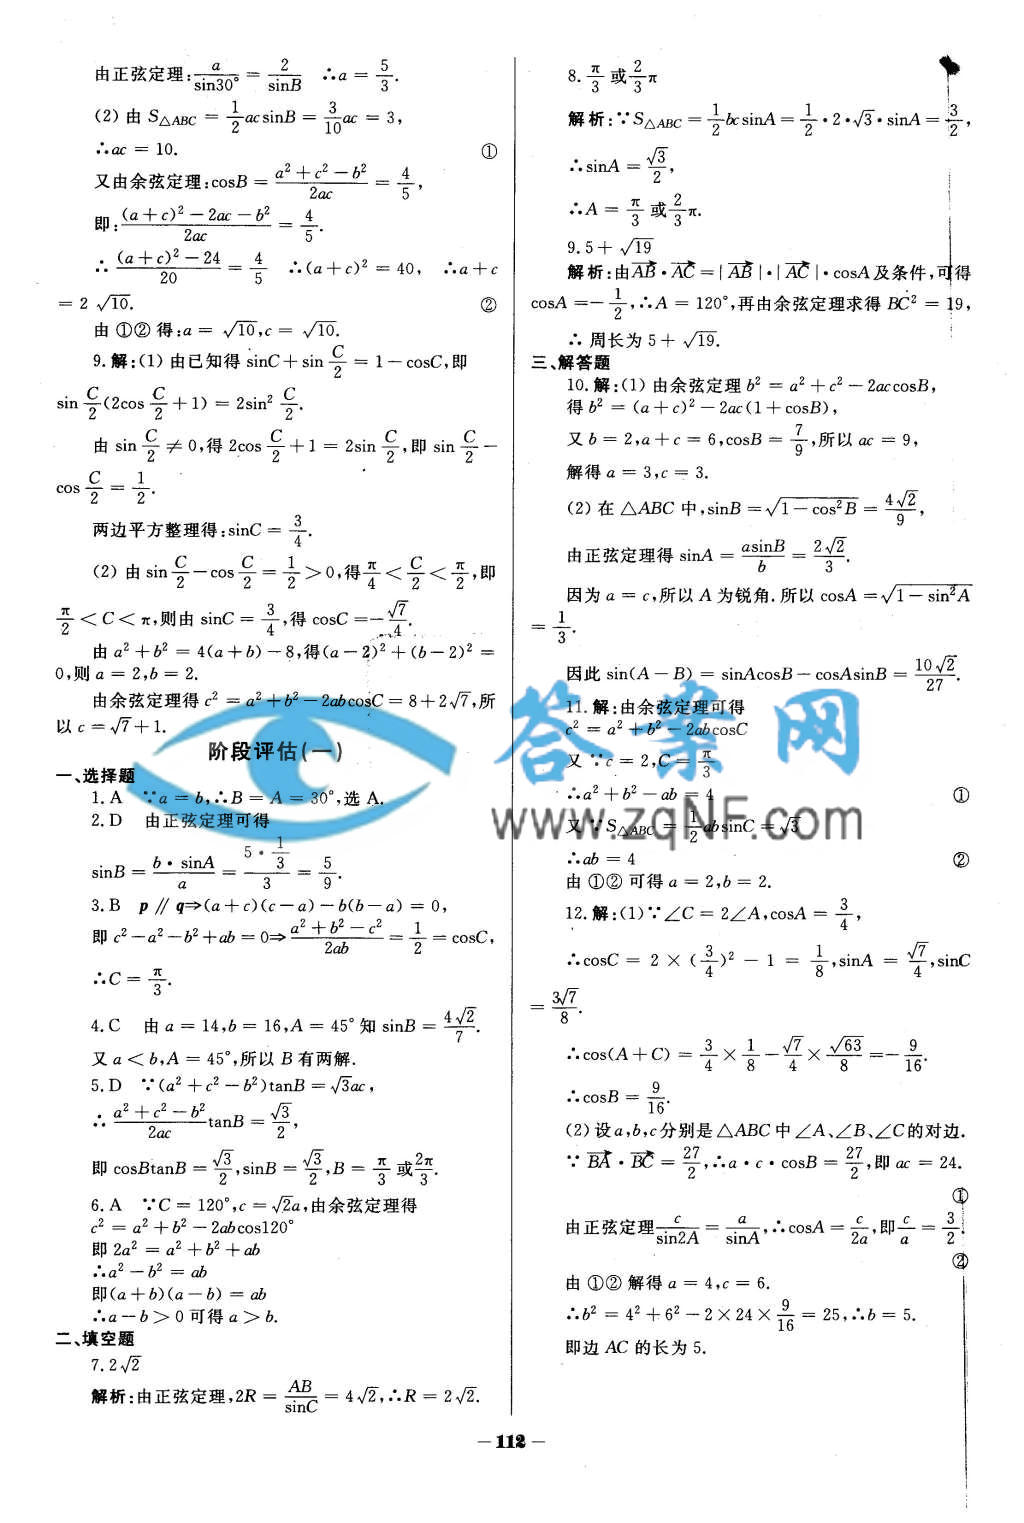 由正弦定理:a/sin30° = 2/sinB ∴a = 5/3.
(2) 由 S△ABC = 1/2 acsinB = 3/10 ac = 3,
∴ac = 10. ①
又由余弦定理:cosB = (a²+c²-b²)/2ac = 4/5,
即:((a+c)²-2ac-b²)/2ac = 4/5.
∴ ((a+c)²-24)/20 = 4/5 ∴(a+c)² = 40, ∴a+c
= 2√10. ②
由 ①② 得:a = √10,c = √10.
9.解:(1) 由已知得 sinC+sin C/2 = 1-cosC,即
sin C/2 (2cos C/2 +1) = 2sin² C/2.
由 sin C/2 ≠ 0,得 2cos C/2 +1 = 2sin C/2,即 sin C/2 -
cos C/2 = 1/2.
两边平方整理得:sinC = 3/4.
(2) 由 sin C/2 -cos C/2 = 1/2 >0,得 π/4 < C/2 < π/2,即
π/2 <C<π,则由 sinC = 3/4,得 cosC =-√7/4.
由 a²+b² = 4(a+b)-8,得(a-2)²+(b-2)² =
0,则 a = 2,b = 2.
由余弦定理得 c² = a²+b²-2abcosC = 8+2√7,所
以 c = √7+1.
阶段评估(一)
一、选择题
1.A ∵a = b,∴B = A = 30°,选 A.
2.D 由正弦定理可得
sinB = b·sinA/a = (5·1/3)/3 = 5/9.
3.B p∥q⇒(a+c)(c-a)-b(b-a) = 0,
即 c²-a²-b²+ab = 0⇒(a²+b²-c²)/2ab = 1/2 = cosC,
∴C = π/3.
4.C 由 a = 14,b = 16,A = 45° 知 sinB = 4√2/7.
又 a<b,A = 45°,所以 B 有两解.
5.D ∵(a²+c²-b²)tanB = √3ac,
∴ (a²+c²-b²)/2ac tanB = √3/2,
即 cosBtanB = √3/2,sinB = √3/2,B = π/3 或 2π/3.
6.A ∵C = 120°,c = √2a,由余弦定理得
c² = a²+b²-2abcos120°
即 2a² = a²+b²+ab
∴a²-b² = ab
即(a+b)(a-b) = ab
∴a-b>0 可得 a>b.
二、填空题
7.2√2
解析:由正弦定理,2R = AB/sinC = 4√2,∴R = 2√2.
8.π/3 或 2/3 π
解析:∵S△ABC = 1/2 bcsinA = 1/2 ·2·√3·sinA = 3/2,
∴sinA = √3/2,
∴A = π/3 或 2/3 π.
9.5+√19
解析:由AB·AC = |AB|·|AC|·cosA及条件,可得
cosA =-1/2,∴A = 120°,再由余弦定理求得 BC² = 19,
∴ 周长为 5+√19.
三、解答题
10.解:(1) 由余弦定理 b² = a²+c²-2accosB,
得 b² = (a+c)²-2ac(1+cosB),
又 b = 2,a+c = 6,cosB = 7/9,所以 ac = 9,
解得 a = 3,c = 3.
(2) 在 △ABC 中,sinB = √(1-cos²B) = 4√2/9,
由正弦定理得 sinA = asinB/b = 2√2/3.
因为 a = c,所以 A 为锐角.所以 cosA = √(1-sin²A)
= 1/3.
因此 sin(A-B) = sinAcosB-cosAsinB = 10√2/27.
11.解:由余弦定理可得
c² = a²+b²-2abcosC
又 ∵c = 2,C = π/3
∴a²+b²-ab = 4 ①
又 ∵S△ABC = 1/2 absinC = √3
∴ab = 4 ②
由 ①② 可得 a = 2,b = 2.
12.解:(1)∵∠C = 2∠A,cosA = 3/4,
∴cosC = 2×(3/4)²-1 = 1/8,sinA = √7/4,sinC
= 3√7/8.
∴cos(A+C) = 3/4×1/8-√7/4×√63/8 =-9/16.
∴cosB = 9/16.
(2) 设 a,b,c分别是 △ABC 中 ∠A、∠B、∠C 的对边.
∵ BA·BC = 27/2,∴a·c·cosB = 27/2,即 ac = 24.
①
由正弦定理 c/sin2A = a/sinA,∴cosA = c/2a,即 c/a = 3/2.
②
由 ①② 解得 a = 4,c = 6.
∴b² = 4²+6²-2×24×9/16 = 25,∴b = 5.
即边 AC 的长为 5.
答案网
www.zqNF.com
- 112 -